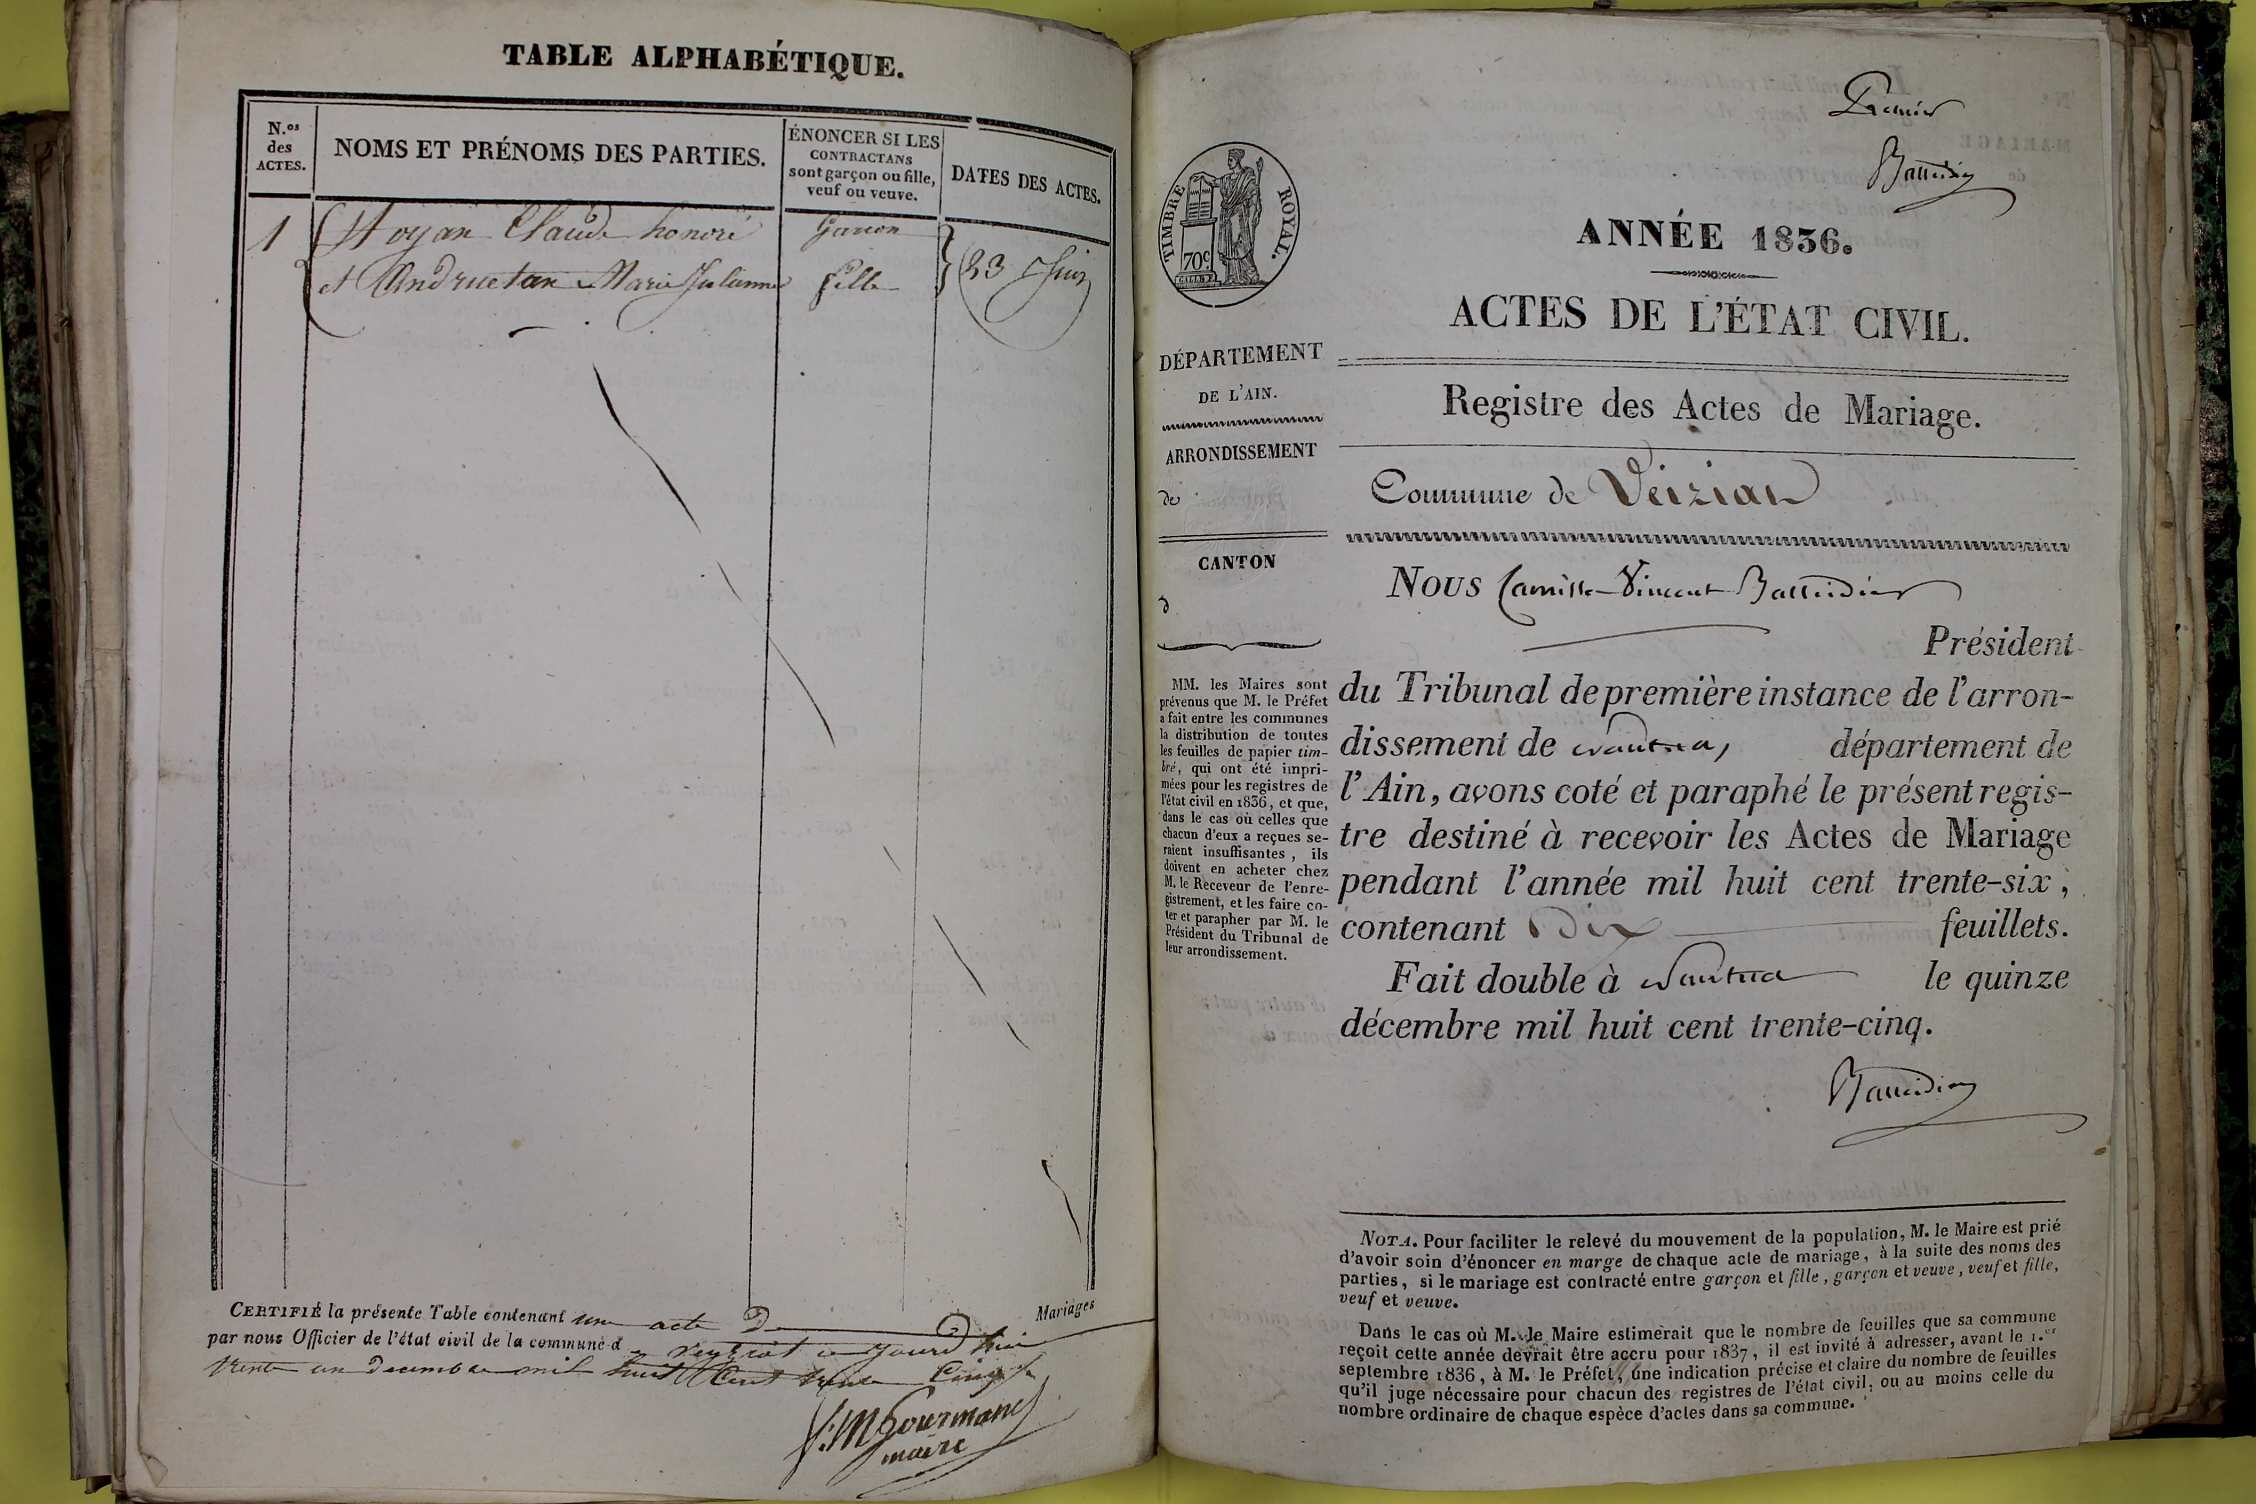 TABLE ALPHABÉTIQUE.
N.os des ACTES.
NOMS ET PRÉNOMS DES PARTIES.
ÉNONCER SI LES
CONTRACTANS
sont garçon ou fille,
veuf ou veuve.
DATES DES ACTES.
1 Moyan Claude honoré Garcon
et Andruetan Marie Julienne fille 23 Juin
CERTIFIÉ la présente Table contenant une acte D Mariages
par nous Officier de l'état civil de la commune d veyziat ce Jourd hui
trente un decembre mil huit Cent trente Cinq
Gourmand
maire
Premier
Battidier
TIMBRE ROYAL.
70c.
ANNÉE 1836.
ACTES DE L'ÉTAT CIVIL.
DÉPARTEMENT
DE L'AIN.
ARRONDISSEMENT
de
CANTON
d
MM. les Maires sont
prévenus que M. le Préfet
a fait entre les communes
la distribution de toutes
les feuilles de papier tim-
bré, qui ont été impri-
mées pour les registres de
l'état civil en 1836, et que,
dans le cas où celles que
chacun d'eux a reçues se-
raient insuffisantes, ils
doivent en acheter chez
M. le Receveur de l'enre-
gistrement, et les faire co-
ter et parapher par M. le
Président du Tribunal de
leur arrondissement.
Registre des Actes de Mariage.
Commune de Veiziat
Nous Camille Vincent Battidier
Président
du Tribunal de première instance de l'arron-
dissement de Nantua, département de
l'Ain, avons coté et paraphé le présent regis-
tre destiné à recevoir les Actes de Mariage
pendant l'année mil huit cent trente-six,
contenant Dix feuillets.
Fait double à Nantua le quinze
décembre mil huit cent trente-cinq.
Battidier
NOTA. Pour faciliter le relevé du mouvement de la population, M. le Maire est prié
d'avoir soin d'énoncer en marge de chaque acte de mariage, à la suite des noms des
parties, si le mariage est contracté entre garçon et fille, garçon et veuve, veuf et fille,
veuf et veuve.
Dans le cas où M. le Maire estimerait que le nombre de feuilles que sa commune
reçoit cette année devrait être accru pour 1837, il est invité à adresser, avant le 1.er
septembre 1836, à M. le Préfet, une indication précise et claire du nombre de feuilles
qu'il juge nécessaire pour chacun des registres de l'état civil, ou au moins celle du
nombre ordinaire de chaque espèce d'actes dans sa commune.